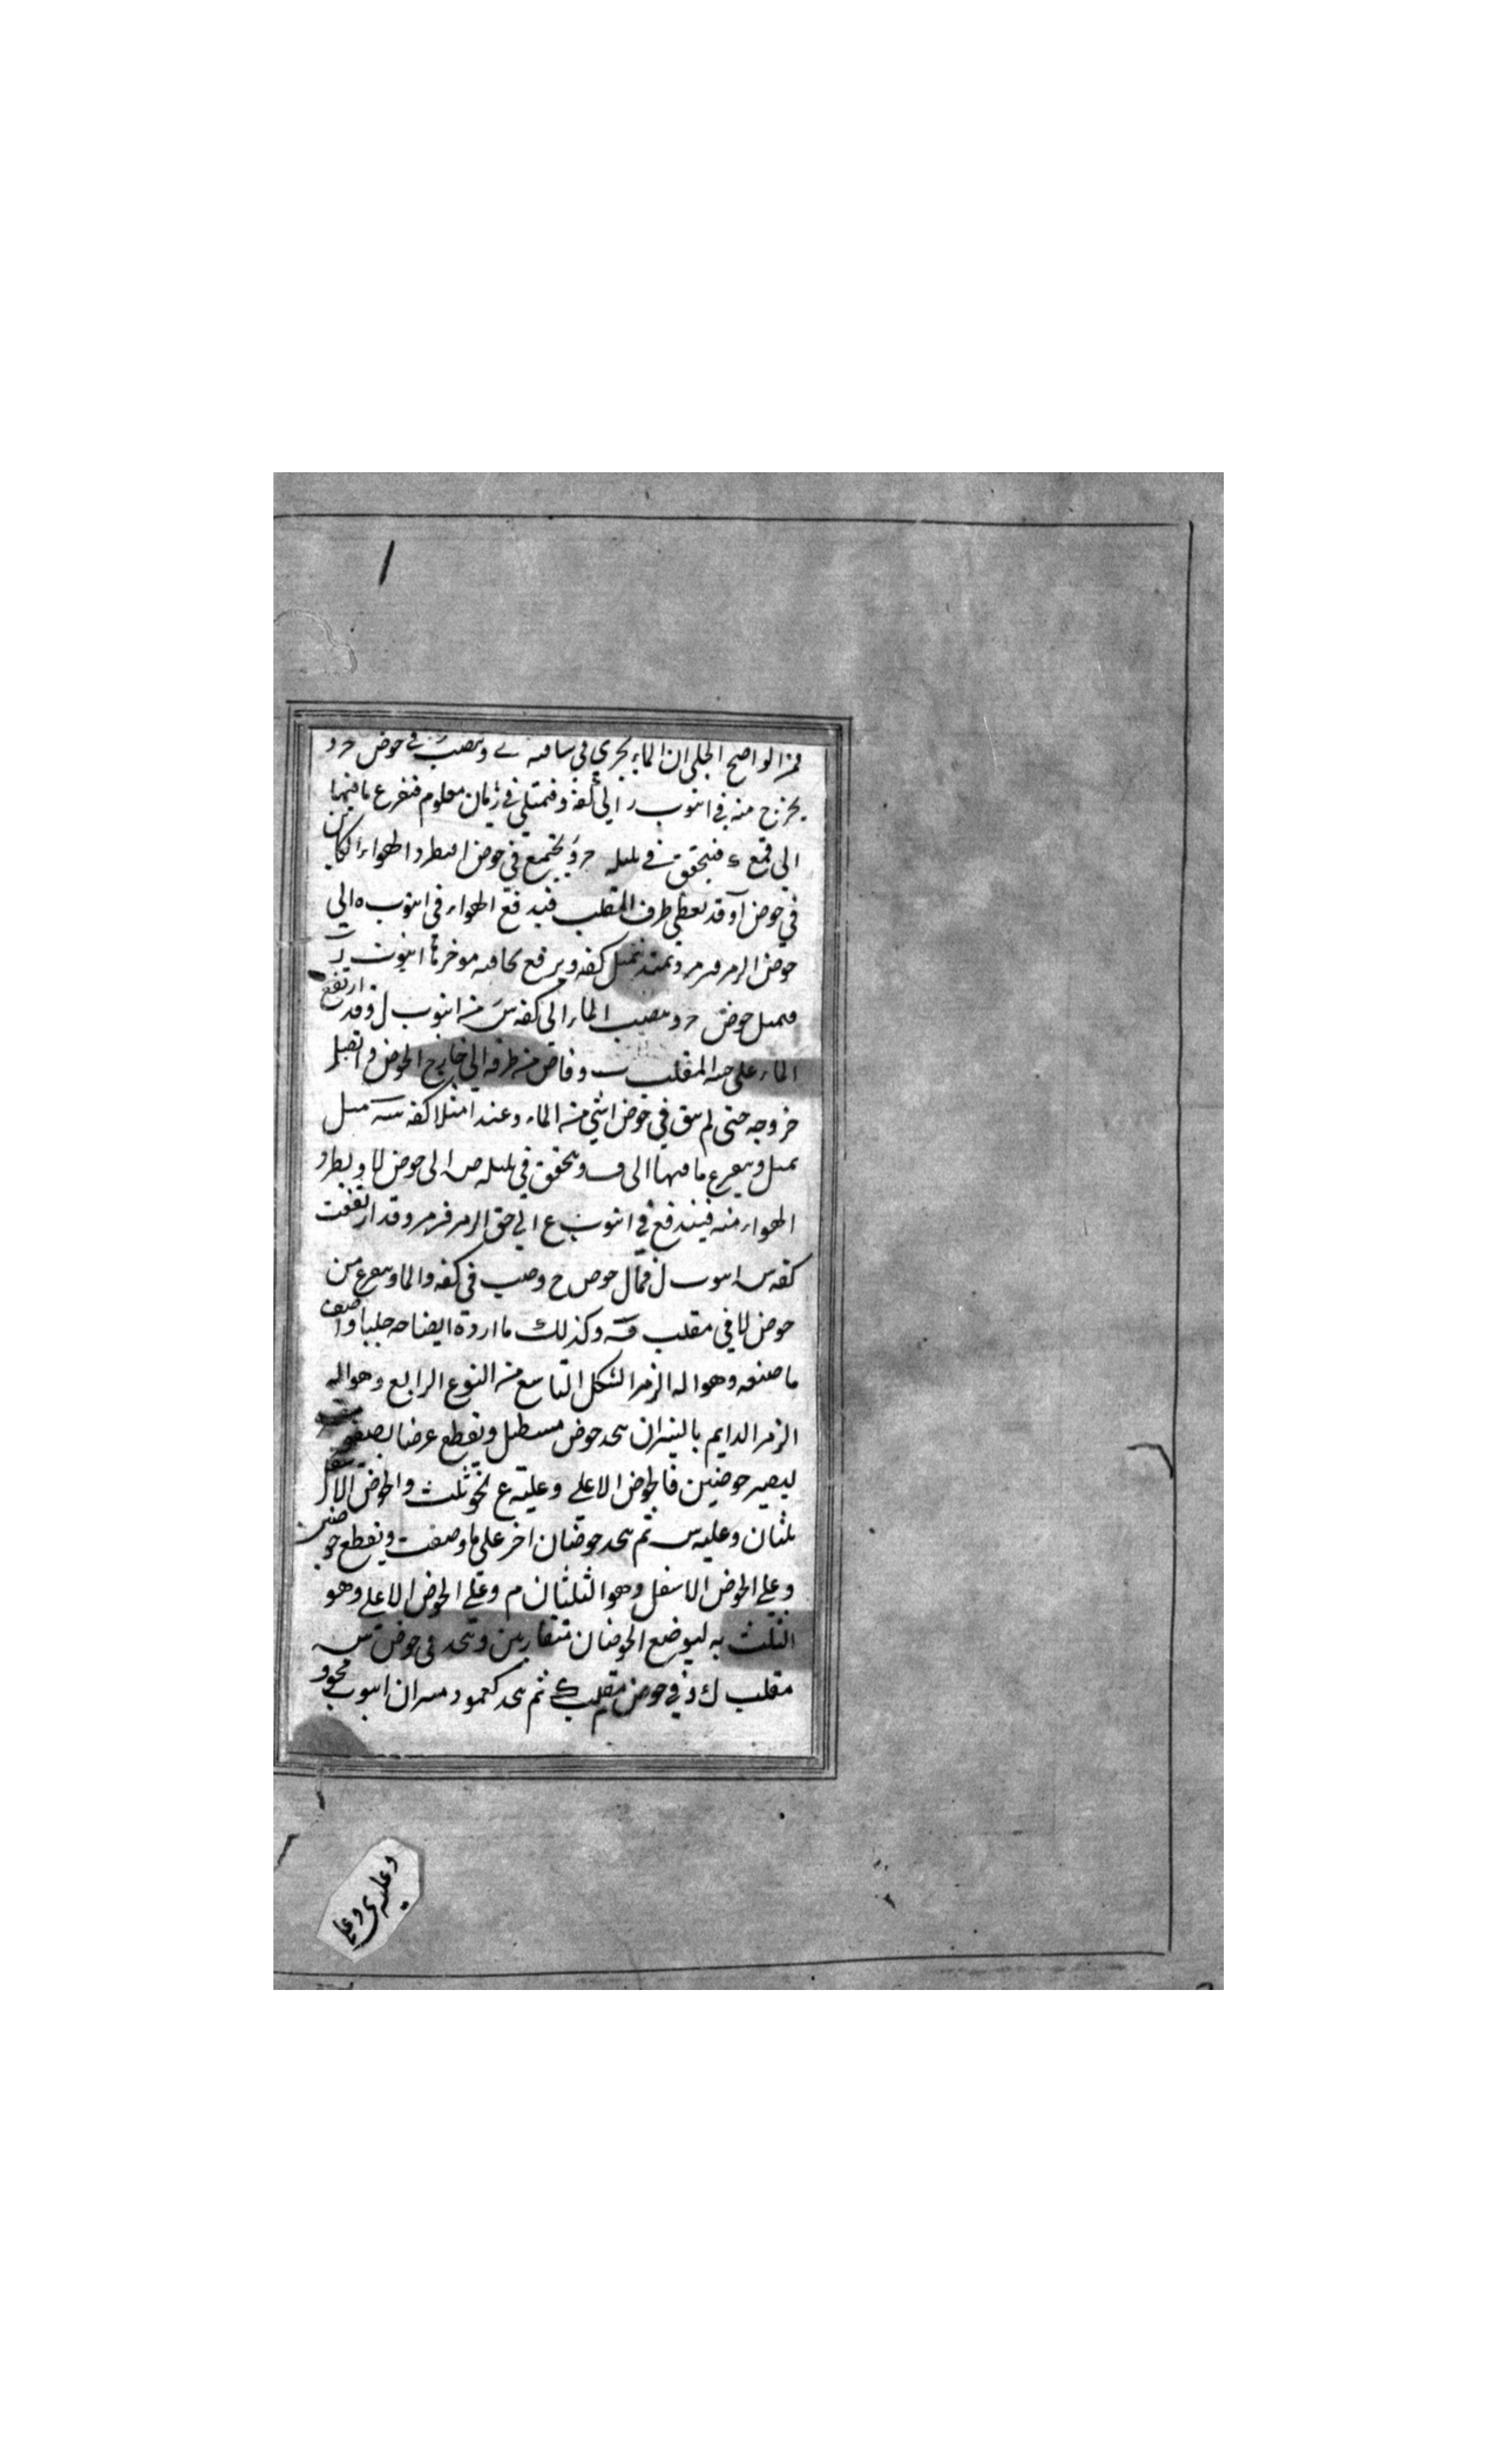 فمن الواضح الجلي ان الماء يجري في ساقية ے ويصب في حوض حر و
يخرج منه في انبوب ر الي كفة و فتمتلي في زمان معلوم فتفرغ ما فيها
الي قمع ء فيتحقق في بلبله حر ويجتمع في حوض ا فيطرد الهواء الكاين
في حوض آ وقد تغطي طرف المقلب فيندفع الهواء في انبوب ه الي
حوض الزمر فيزمر وعند تميل كفه ويرفع بحافته موخرها انبوب
فيميل حوض حر ويصب الماء الي كفه س من انبوب ل وقد ارتفع
الماء علي المقلب ب وفاض من طرفه الي خارج الحوض واتصل
خروجه حتى لم يبق في حوض ا شي من الماء وعند امتلا كفه س ميل
تميل ويفرغ ما فيها الى ف ويتحقق في بلبله ص الى حوض لا ويطرد
الهواء منه فيندفع في انبوب ع الي حق الزمر فيزمر وقد ارتفعت
كفه س انبوب ل فمال حوض ح وصب في كفه و الماء ويفرغ من
حوض لا في مقلب ق وكذلك ما اردة ايضاحه جليا واصف
ما صنعه وهو اله الزمر الشكل التاسع من النوع الرابع وهو اله
الزمر الدايم بالميزان يتخذ حوض مستطيل ويقطع عرضا بصفيحة
ليصير حوضين فالحوض الاعلي وعليه ع نحو ثلث والحوض الاسفل
ثلثان وعليه س ثم يتخذ حوضان اخر علي ما وصفت ويقطع حوضين
وعلي الحوض الاسفل وهو الثلثان م وعلي الحوض الاعلي وهو
الثلث به ليوضع الحوضان متقاربين ويتخذ في حوض س
مقلب ك وفي حوض مقلب ثم يتخذ كعمود ميزان انبوب مجوف
وعليه ي وعا